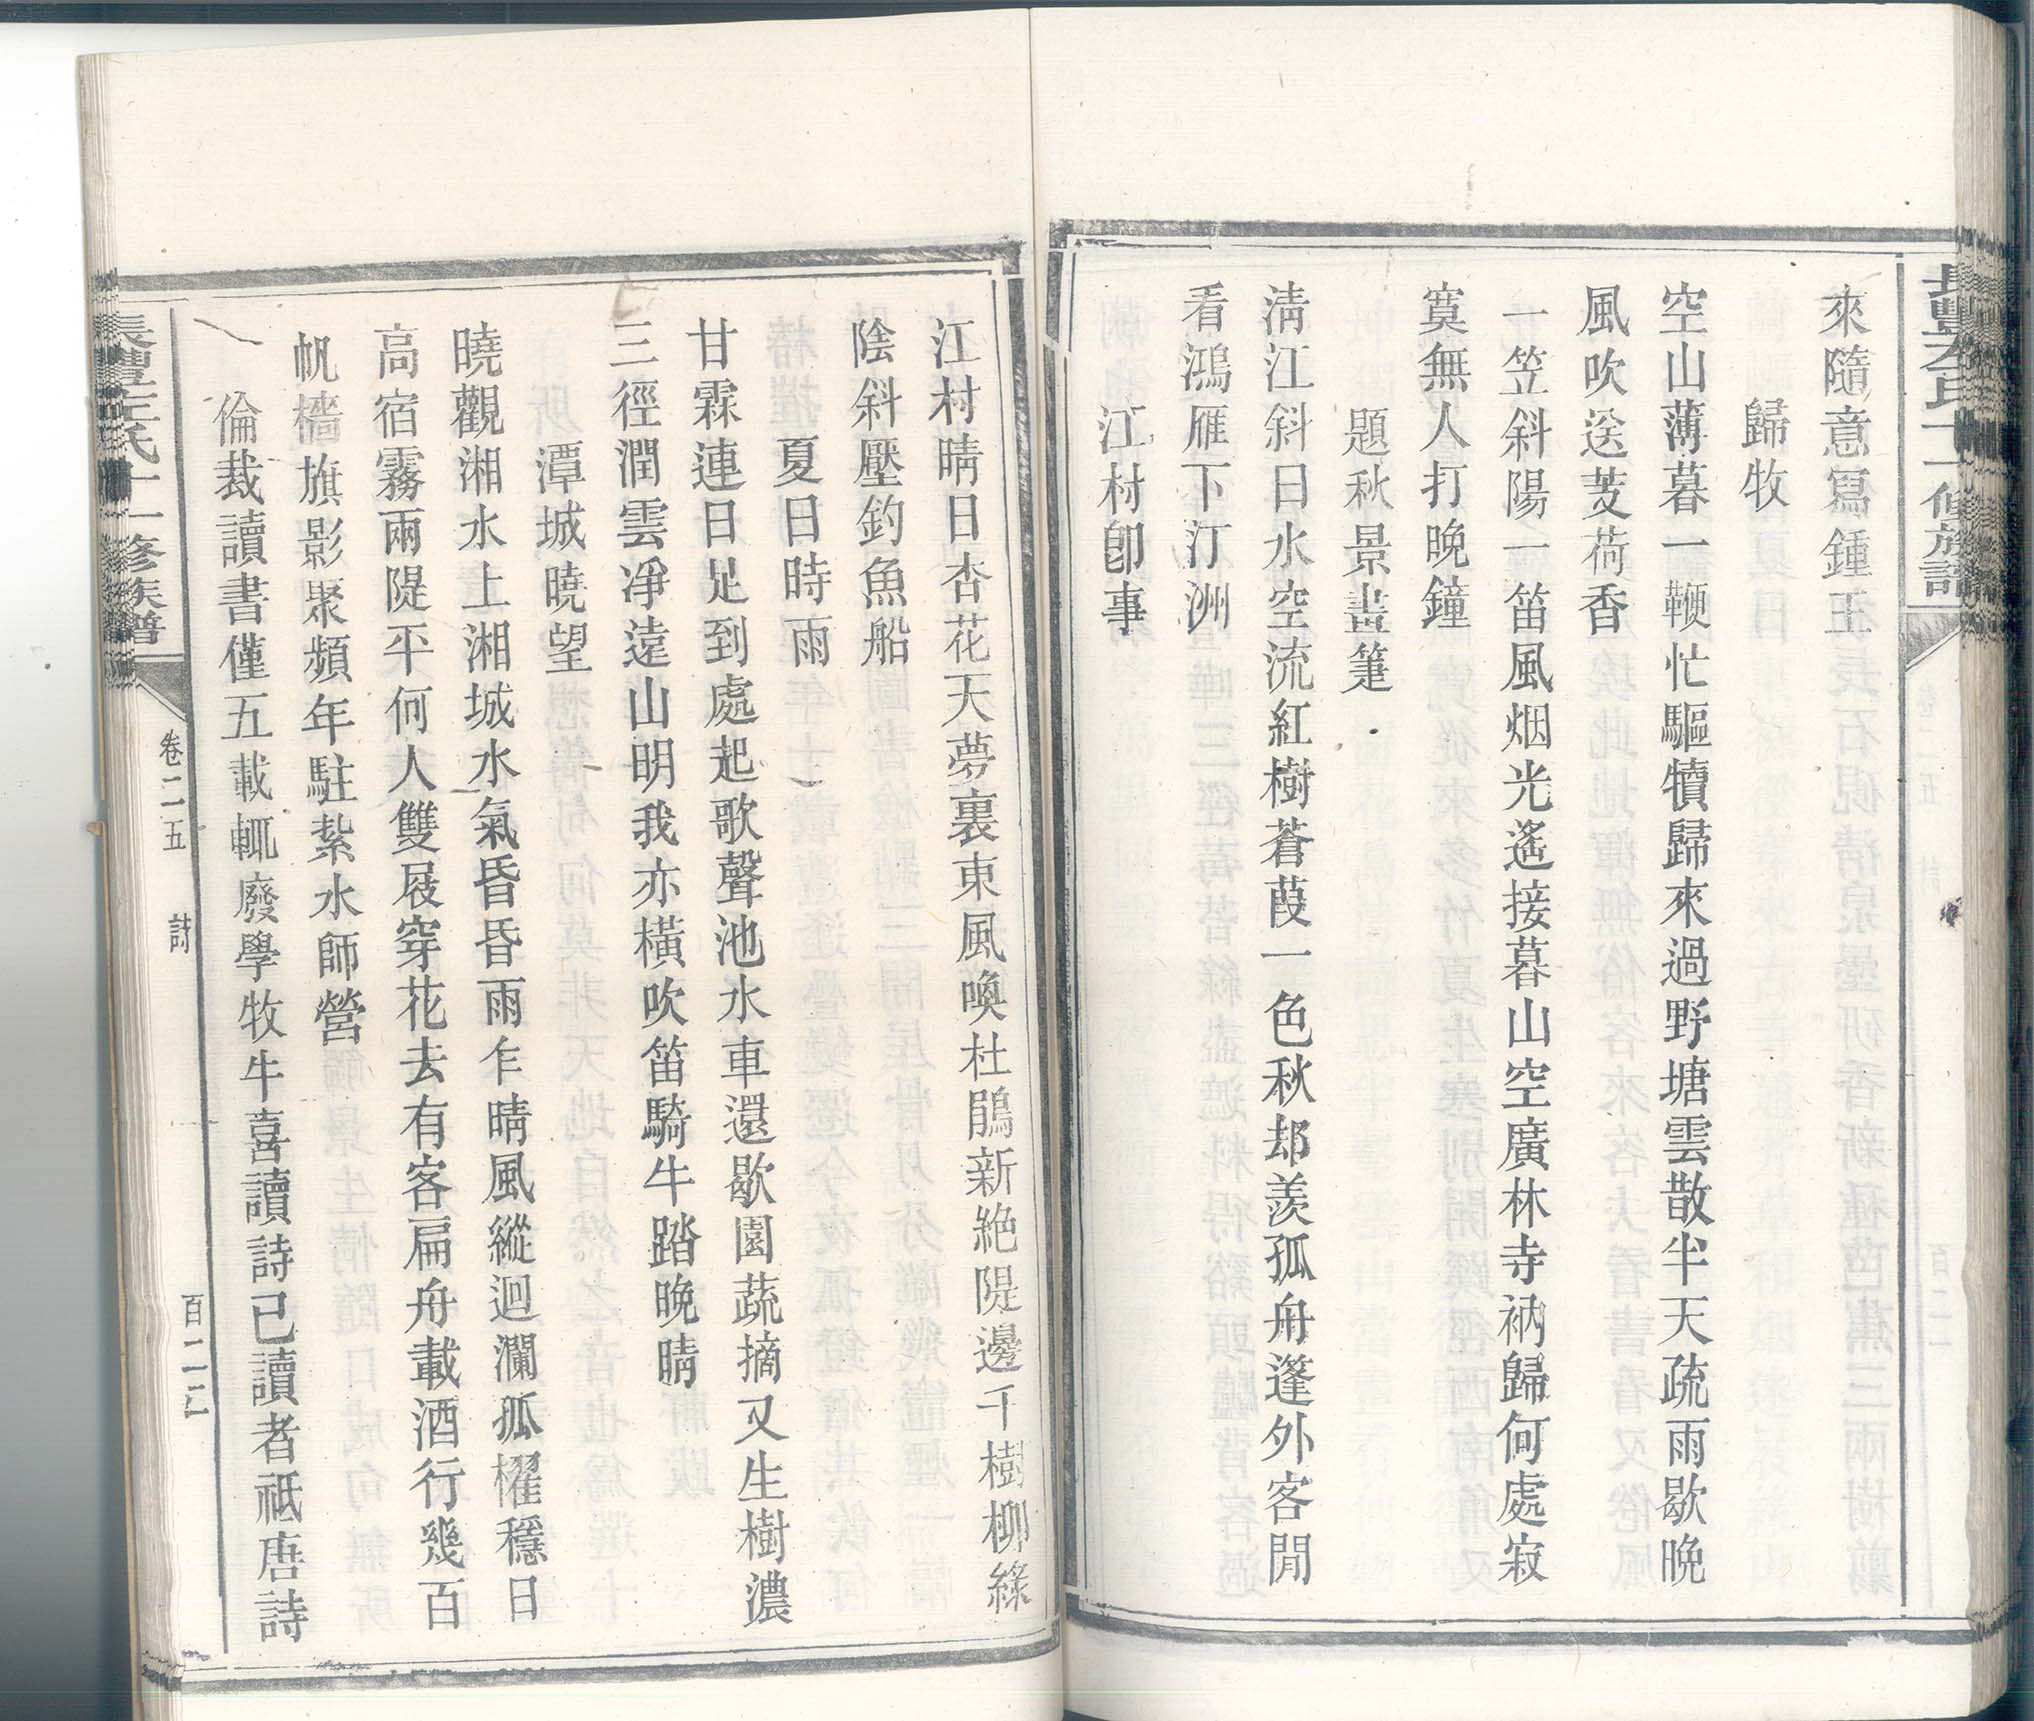 來隨意寫鍾王
歸牧
空山薄暮一鞭忙驅犢歸來過野塘雲散半天疏雨歇晚
風吹送芰荷香
一笠斜陽一笛風烟光遙接暮山空廣林寺衲歸何處寂
寞無人打晚鐘
題秋景畫箑
淸江斜日水空流紅樹蒼葭一色秋却羨孤舟篷外客閒
看鴻雁下汀洲
江村卽事
江村晴日杏花天夢裏東風喚杜鵑新絶隄邊千樹柳綠
陰斜壓釣魚船
夏日時雨
甘霖連日足到處起歌聲池水車還歇園蔬摘又生樹濃
三徑潤雲凈遠山明我亦橫吹笛騎牛踏晚晴
潭城曉望
曉觀湘水上湘城水氣昏昏雨乍晴風縱迴瀾孤櫂穩日
高宿霧兩隄平何人雙屐穿花去有客扁舟載酒行幾百
帆檣旗影聚頻年駐紮水師營
倫裁讀書僅五載輒廢學牧牛喜讀詩已讀者祗唐詩
一
十一修族譜
卷二五
詩
百二二